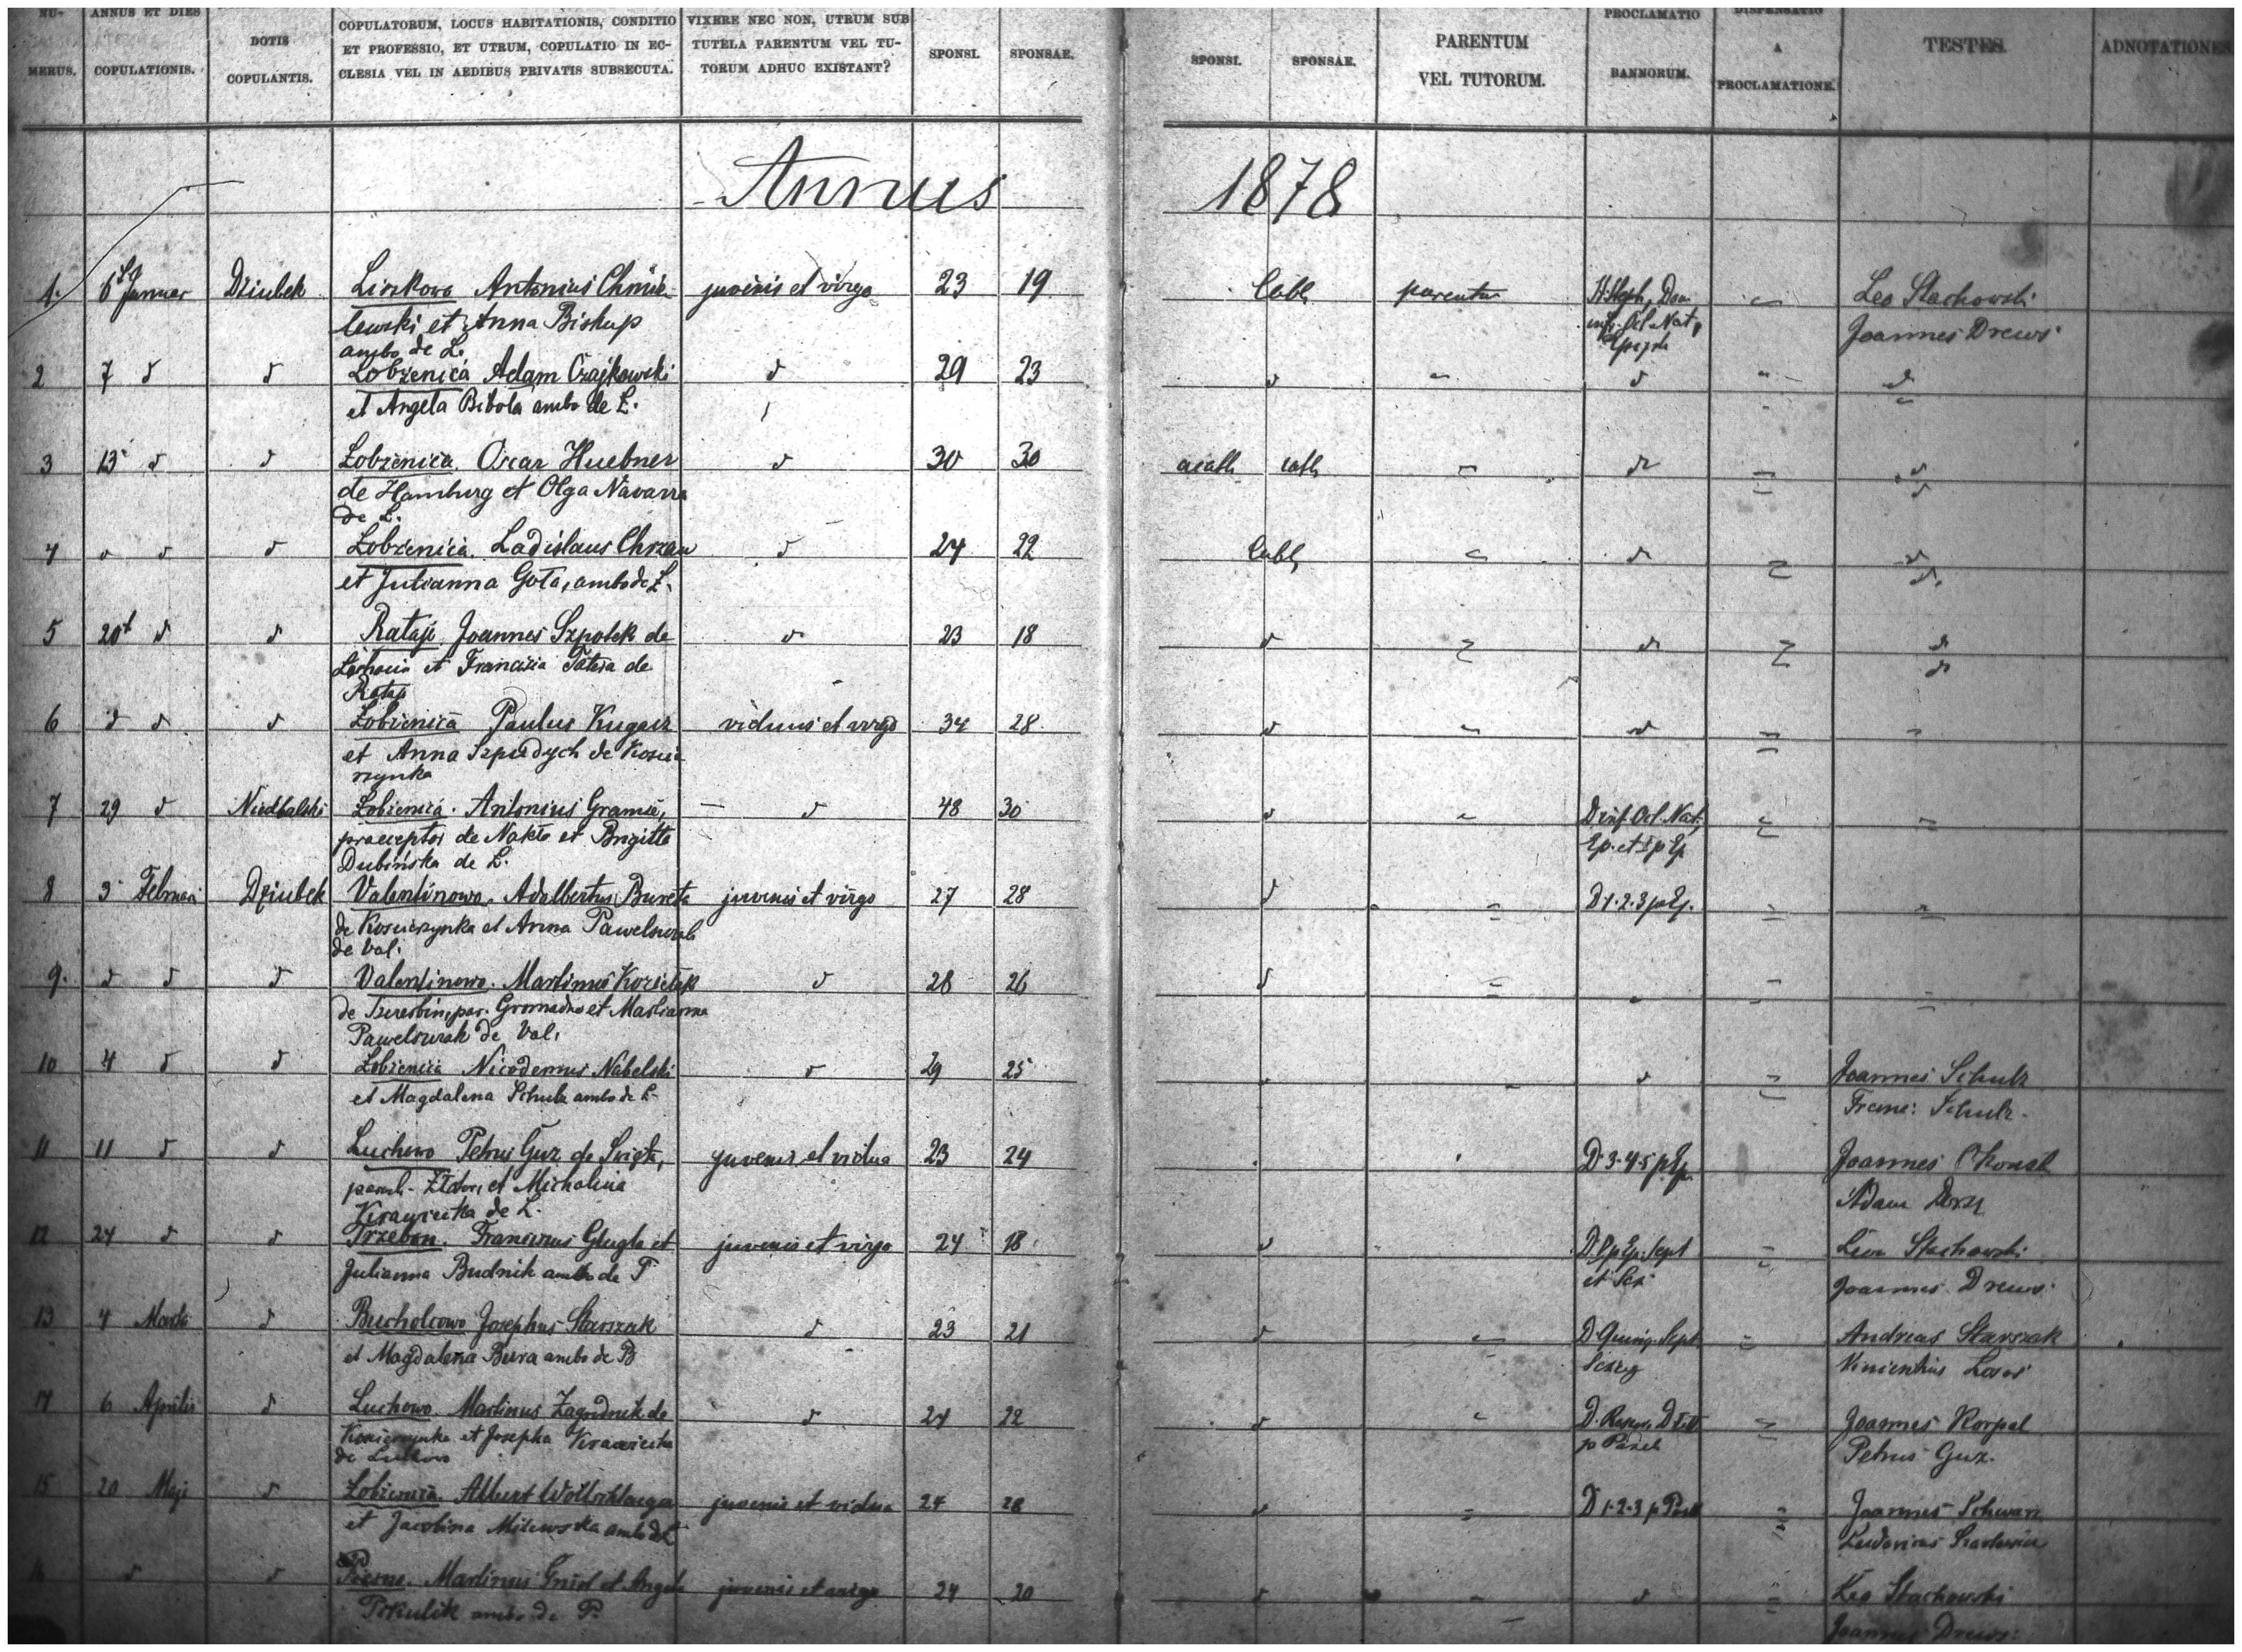 NU-
MERUS.
ANNUS ET DIES
COPULATIONIS.
DOTIS
COPULANTIS.
COPULATORUM, LOCUS HABITATIONIS, CONDITIO
ET PROFESSIO, ET UTRUM, COPULATIO IN EC-
CLESIA VEL IN AEDIBUS PRIVATIS SUBSECUTA.
VIXERE NEC NON, UTRUM SUB
TUTELA PARENTUM VEL TU-
TORUM ADHUC EXISTANT?
SPONSI.
SPONSAE.
SPONSI.
SPONSAE.
PARENTUM
VEL TUTORUM.
PROCLAMATIO
BANNORUM.
DISPENSATIO
A
PROCLAMATIONE.
TESTES.
ADNOTATIONES
Annus 1878
1. 6 Januar Dziubek Liszkowo Antonius Chmie- juvenis et virgo 23 19 Cath parentum Leo Stachowski
lewski et Anna Biskup Joannes Drews
ambo de L.
2 7 d d Łobżenica Adam Czajkowski d 29 23 d d d
et Angela ambo de Ł.
3 13 d d Łobżenica. Oscar Huebner d 30 30 acath cath d d
de Hamburg et Olga Navarra d
de Ł.
4 d d d Łobżenica. Ladislaus Chrzan d 24 22 Cath d d
et Julianna Gola, ambo de Ł. d
5 20 d d Rataje Joannes Szpotek de d 23 18 d d d
et Francisca de d
Rataje
6 d d d Łobżenica Paulus viduus et virgo 34 28 d d
et Anna de Kosie-
rzynka
7 29 d Niedbalski Łobżenica. Antonius d 48 30 d D inf. Oct. Nat.
praeceptor de Nakło et Brigitta Ep. et I p Ep
Dubińska de Ł.
8 3 Februari Dziubek Valentinowo. Adalbertus Bureta juvenis et virgo 27 28 d D. 1. 2. 3 p Ep.
de Kosierzynka et Anna
de Val.
9. d d d Valentinowo. Martinus d 28 26 d
de par. Gromadno et Marianna
de Val.
10 4 d d Łobżenica Nicodemus Nabelski d 29 25 d Joannes Schulz
et Magdalena Schulz ambo de Ł. Franc: Schulz.
11 11 d d Luchowo Petrus Guz de juvenis et vidua 23 24 D. 3. 4. 5 p Ep. Joannes
et Michalina Adam
Krawiecka de L.
12 24 d d Trzeboń. Franciscus Glugla et juvenis et virgo 24 18 d Sept Leon Stachowski
Julianna Budnik ambo de T et Sex Joannes Drews
13 4 Martii d Bucholcowo Josephus Starszak d 23 21 d D. Quinq. Sept Andreas Starszak
et Magdalena Bura ambo de B Vincentius
14 6 Aprilis d Luchowo. Martinus Zagrodnik de d 24 22 d Joannes Korpal
et Josepha Krawiecka Petrus Guz.
de
15 20 Maji d Łobżenica Albert juvenis et vidua 24 28 d D 1. 2. 3 p Joannes Schwarz
et Jacobina Milewska ambo de Ł Ludovicus
16 d d Martinus et Angela juvenis et virgo 24 20 d d Leo Stachowski
ambo de P. Joannes Drews.